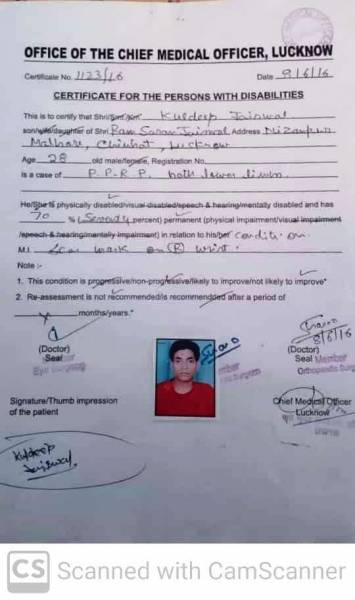 OFFICE OF THE CHIEF MEDICAL OFFICER, LUCKNOW
Certificate No. 1123/16 Date 9/6/16
CERTIFICATE FOR THE PERSONS WITH DISABILITIES
This is to certify that Shri/Smt/Km Kuldeep Jaiswal
son/wife/daughter of Shri Ram Saran Jaiswal Address Nizampur
Malhor, Chinhat, Lucknow
Age 28 old male/female, Registration No.
is a case of P.P.R.P. both lower limb.
He/She is physically disabled/visual disabled/speech & hearing/mentally disabled and has
70 % (Seventy percent) permanent (physical impairment/visual impairment
/speech & hearing/mentally impairment) in relation to his/her condition.
M.I. Scar mark on (R) wrist.
Note :-
1. This condition is progressive/non-progressive/likely to improve/not likely to improve*
2. Re-assessment is not recommended/is recommended after a period of
x months/years.*
(Doctor) (Doctor)
Seal Seal Member
Eye Surgeon Orthopaedic Surgeon
8/6/16
Signature/Thumb impression Chief Medical Officer
of the patient Lucknow
Kuldeep
Jaiswal
CS Scanned with CamScanner